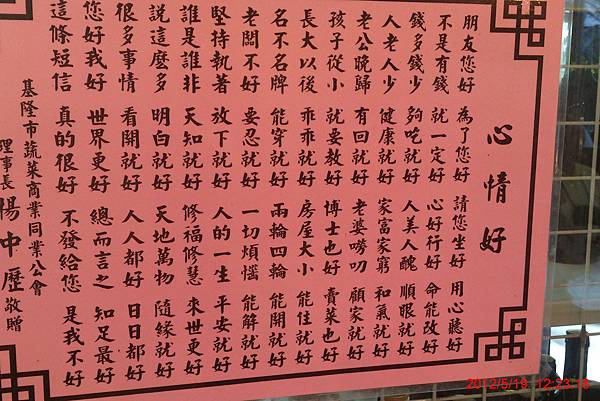 心情好
朋友您好 為了您好 請您坐好 用心聽好
不是有錢 就一定好 心好行好 命能改好
錢多錢少 夠吃就好 人美人醜 順眼就好
人老人少 健康就好 家富家窮 和氣就好
老公晚歸 有回就好 老婆嘮叨 顧家就好
孩子從小 就要教好 博士也好 賣菜也好
長大以後 乖乖就好 房屋大小 能住就好
名不名牌 能穿就好 兩輪四輪 能開就好
老闆不好 要忍就好 一切煩惱 能解就好
堅持執著 放下就好 人的一生 平安就好
誰是誰非 天知就好 修福修慧 來世更好
說這麼多 明白就好 天地萬物 隨緣就好
很多事情 看開就好 人人都好 日日都好
您好我好 世界更好 總而言之 知足最好
這條短信 真的很好 不發給您 是我不好
基隆市蔬菜商業同業公會
理事長 楊中歷 敬贈
2012/5/19 12:23